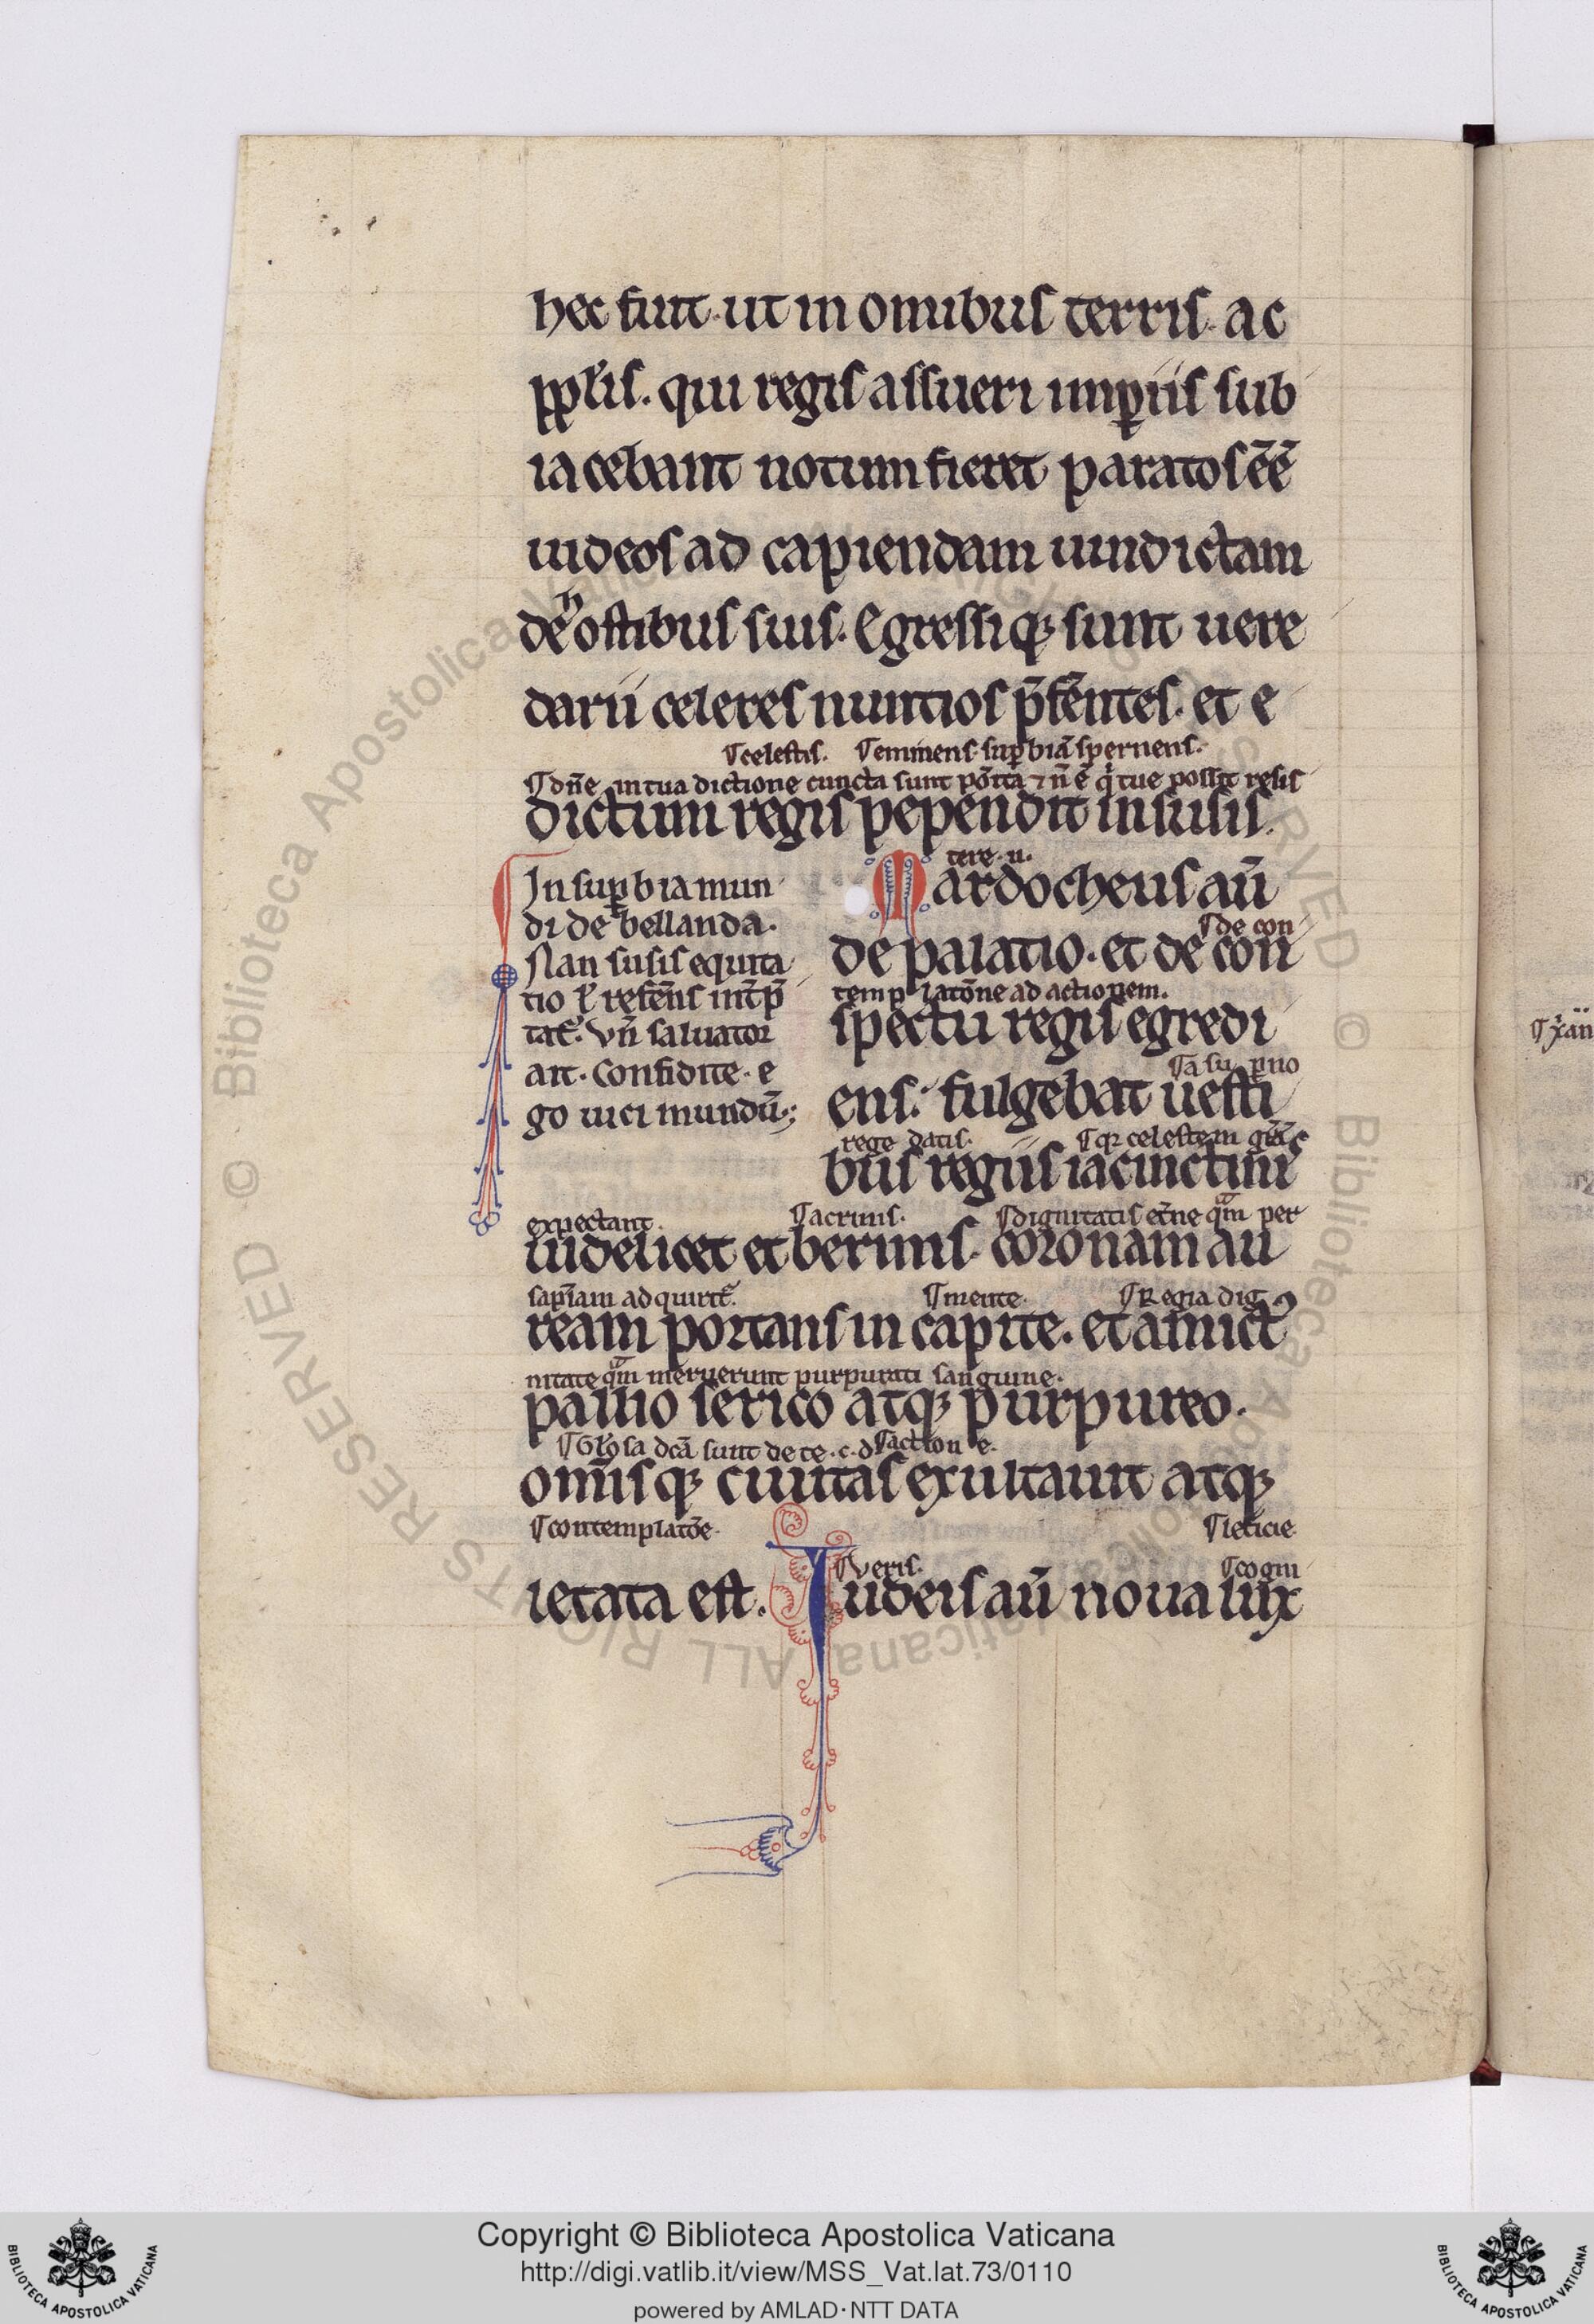 hec fuit. ut in omnibus terris. ac
ppl'is. qui regis assueri imꝑiis sub
iacebant notum fieret paratos eē̄
iudeos ad capiendam uindictam
de hostibus suis. Egressiqꝫ sunt uere
darii celeres nuntios p̄fer̄ntes. et e
¶celestis. ¶eminens suꝑbiā spernens.
¶dn̄e in tua dictione cuncta sunt pōita ⁊ n̄ ē q̇ tue possit resis
dictum regis pependit in susis.
tere. u.
In suꝑbia mun
di de bellanda.
Nan susis equita
tio ł refer̄ns int̄p̄
tat᷑. Vn̄ saluator
ait. Confidite. e
go uici mundū.;
Mardocheus aū
¶de con
de palatio. et de con
templatōne ad actionem.
spectu regis egredi
¶a suꝑno
ens. fulgebat uesti
rege datis. ¶qꝛ celestem gr̄ā
bus regiis iacinctinis
expectant. ¶acriuis. ¶dignitatis et̄ne qᵃm per
uidelicet et berinis. coronam au
sap̄iam adquirit᷑. ¶mente. ¶Regia dig
ream portans in capite. et amictꝰ
nitate qᵃm meruerunt purpurati sanguine.
pallio serico atqꝫ purpureo.
¶Gl'osa dc̄ā sunt de te. c. d. ¶action e.
omīsqꝫ ciuitas exultauit atqꝫ
¶contemplatōe. ¶leticie
¶veris. ¶cogni
letata est. Iudeis aū noua lux
¶χ̄ian
Copyright © Biblioteca Apostolica Vaticana
http://digi.vatlib.it/view/MSS_Vat.lat.73/0110
powered by AMLAD·NTT DATA
BIBLIOTECA APOSTOLICA VATICANA
BIBLIOTECA APOSTOLICA VATICANA